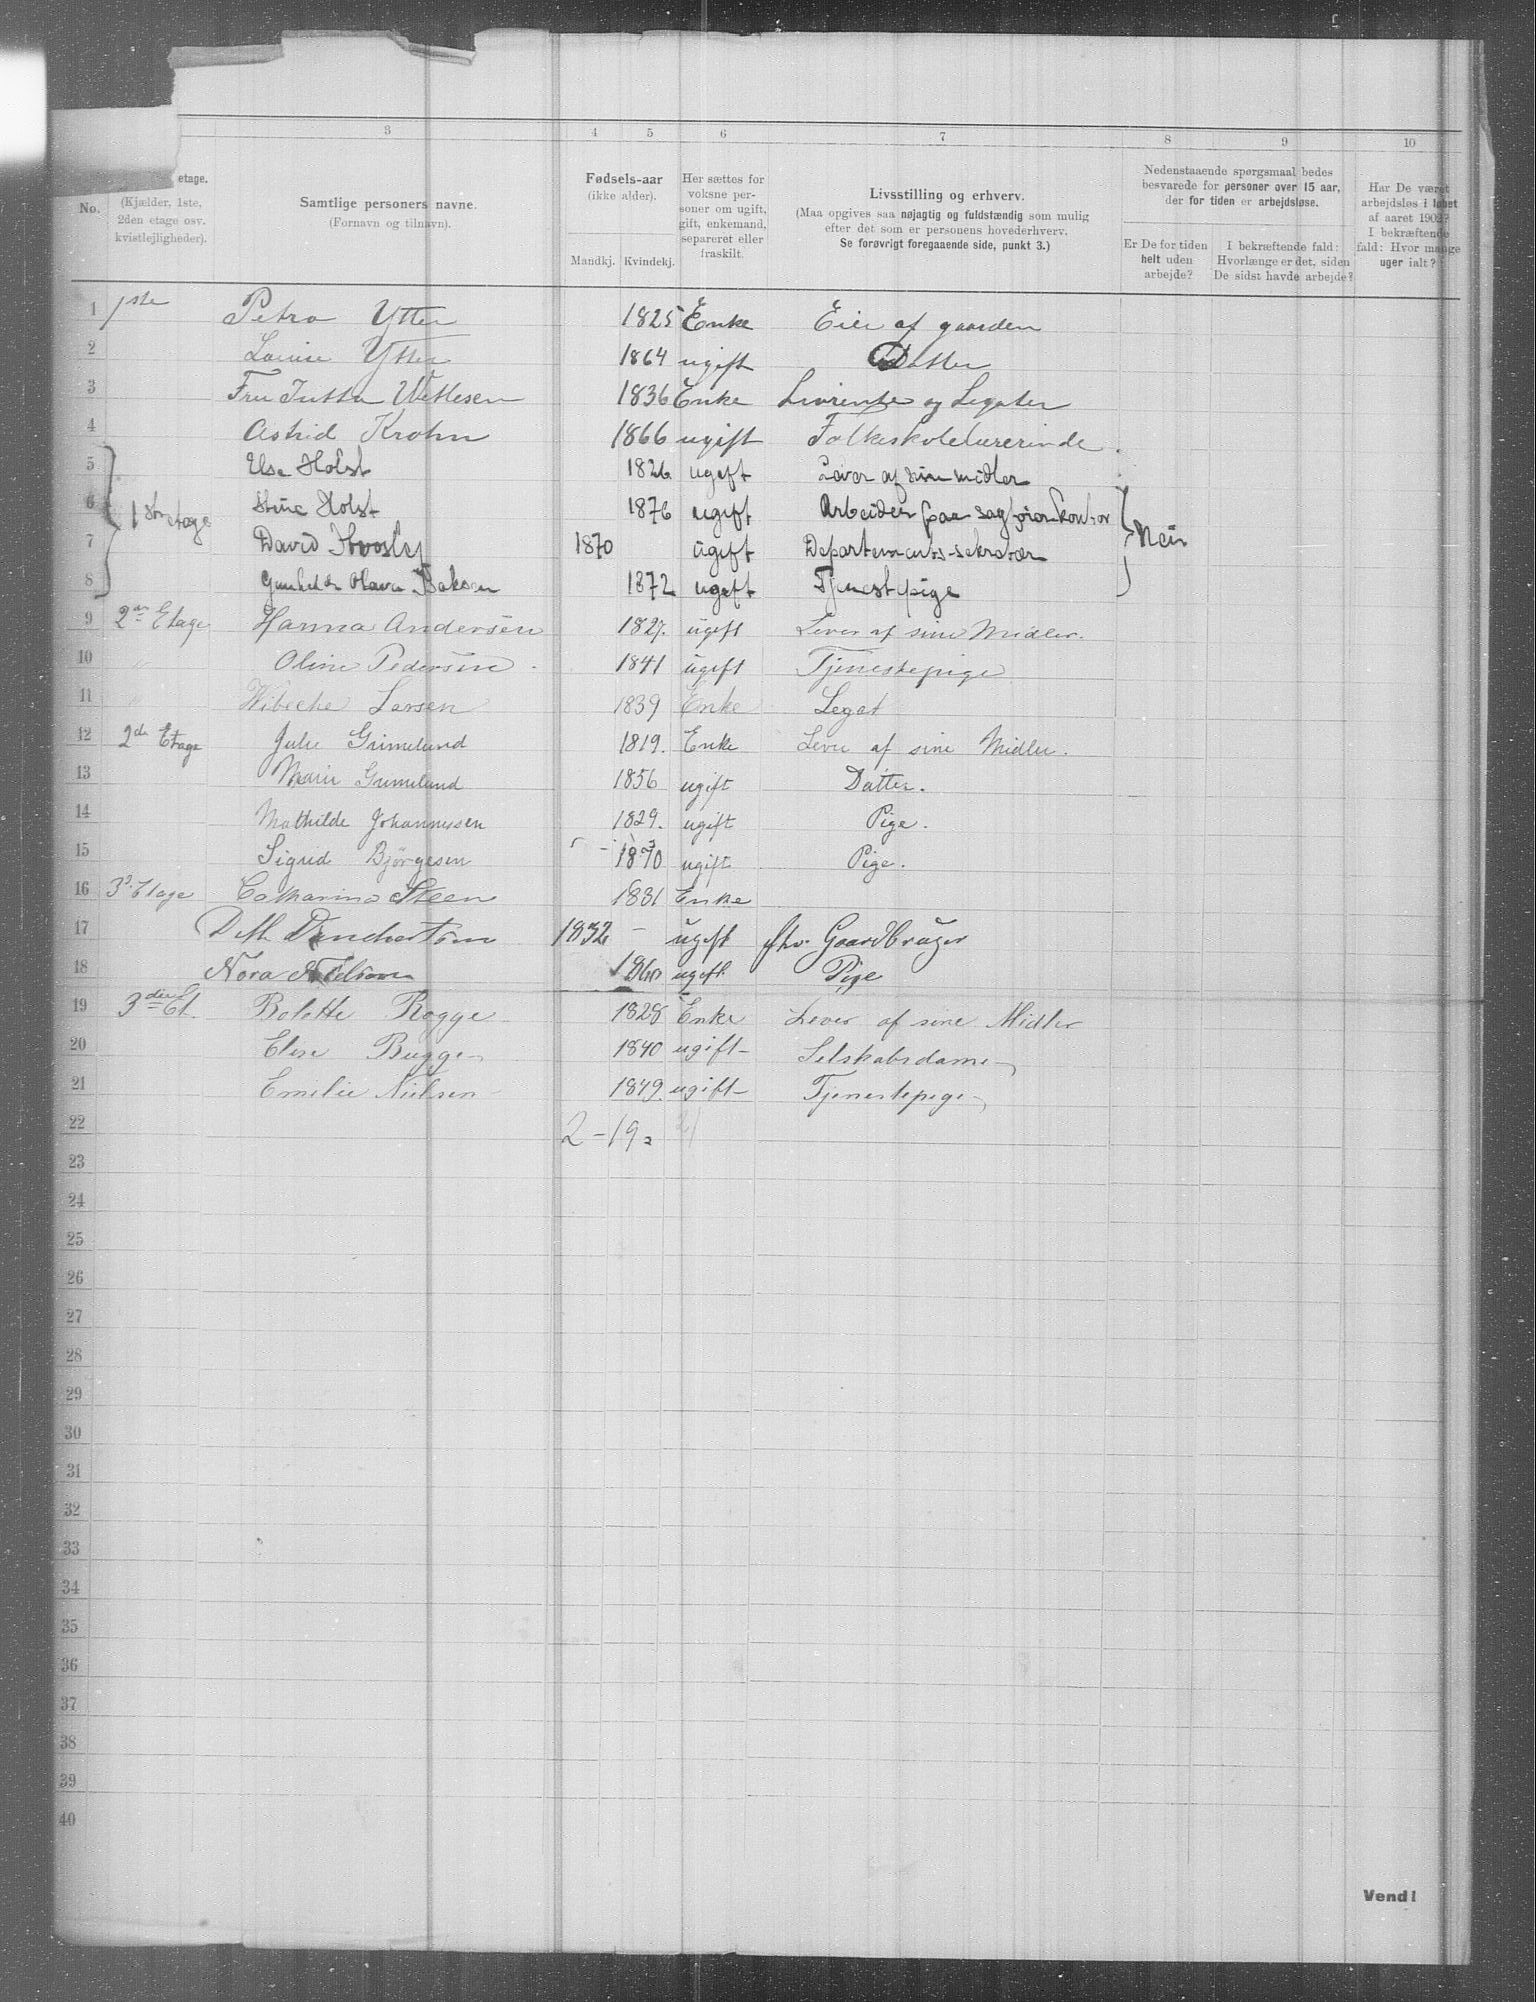 3 4 5 6 7 8 9 10
No.
etage.
(Kjælder, 1ste,
2den etage osv.
kvistlejligheder).
Samtlige personers navne.
(Fornavn og tilnavn).
Fødsels-aar
(ikke alder).
Mandkj. Kvindekj.
Her sættes for
voksne per-
soner om ugift,
gift, enkemand,
separeret eller
fraskilt.
Livsstilling og erhverv.
(Maa opgives saa nøjagtig og fuldstændig som mulig
efter det som er personens hovederhverv.
Se forøvrigt foregaaende side, punkt 3.)
Nedenstaaende spørgsmaal bedes
besvarede for personer over 15 aar,
der for tiden er arbejdsløse.
Er De for tiden
helt uden
arbejde?
I bekræftende fald:
Hvorlænge er det, siden
De sidst havde arbejde?
Har De været
arbejdsløs i løbet
af aaret 1902?
I bekræftende
fald: Hvor mange
uger ialt?
1 1ste Petra Ytter 1825 Enke Eier af gaarden
2 Louise Ytter 1864 ugift Datter
3 Fru Jutta Wetlesen 1836 Enke Livrente og Legater
4 Astrid Krohn 1866 ugift Folkeskolelærerinde.
5 Elsa Holst 1826 ugift Lever af sine midler
6 1ste etage Stine Holst 1876 ugift Arbeider paa sagførerkontor
7 David 1870 ugift Departements-sekretær Nei
8 Gunhilda Olava 1872 ugift Tjenestpige
9 2en Etage Hanna Andersen 1827. ugift Lever af sine Midler.
10 Oline Pedersen. 1841 ugift Tjenestepige
11 Wibeche Larsen 1839 Enke Legat
12 2de Etage Julie Grimelund 1819. Enke Lever af sine Midler.
13 Marie Grimelund 1856 ugift Datter.
14 Mathilde Johannessen 1829. ugift Pige.
15 Sigrid Bjørgesen 1870 ugift Pige.
16 3d. Etage Catharina Steen 1831 Enke
17 Ditl. 1832 - ugift fhv. Gaardbruger
18 Nora 1860 ugift Pige
19 3die Et. Bolette Rogge 1828 Enke Lever af sine Midler
20 Elise Bugge 1840 ugift Selskabsdame
21 Emilie Nielsen 1849. ugift Tjenestepige
22 2-19 = 21
23
24
25
26
27
28
29
30
31
32
33
34
35
36
37
38
39
40
Vend!